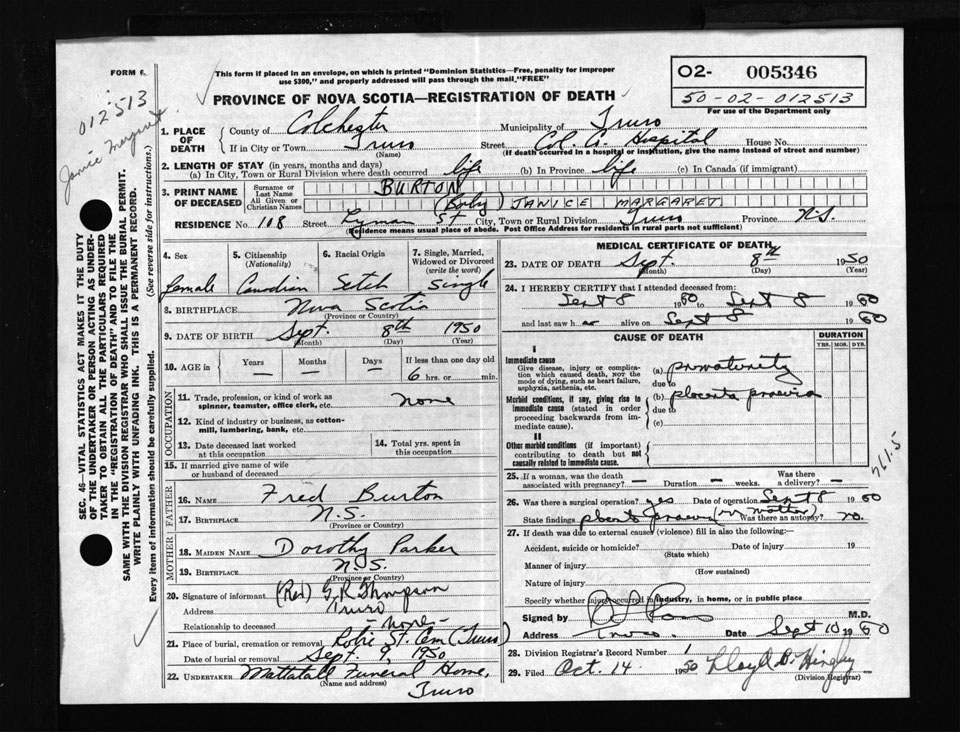 FORM 6.
This form if placed in an envelope, on which is printed "Dominion Statistics—Free, penalty for improper
use $300," and properly addressed will pass through the mail, "FREE"
O2- 005346
50-02-012513
For use of the Department only
PROVINCE OF NOVA SCOTIA—REGISTRATION OF DEATH
012513
Janice Margaret
SEC. 46—VITAL STATISTICS ACT MAKES IT THE DUTY
OF THE UNDERTAKER OR PERSON ACTING AS UNDER-
TAKER TO OBTAIN ALL THE PARTICULARS REQUIRED
IN THE "REGISTRATION OF DEATH" AND TO FILE THE
SAME WITH THE DIVISION REGISTRAR WHO SHALL ISSUE THE BURIAL PERMIT.
WRITE PLAINLY WITH UNFADING INK. THIS IS A PERMANENT RECORD.
Every item of information should be carefully supplied. (See reverse side for instructions.)
1. PLACE OF DEATH
County of Colchester Municipality of Truro
If in City or Town Truro Street Col. Co. Hospital House No.
(Name) (If death occurred in a hospital or institution, give the name instead of street and number)
2. LENGTH OF STAY (in years, months and days)
(a) In City, Town or Rural Division where death occurred life (b) In Province life (c) In Canada (if immigrant)
3 PRINT NAME OF DECEASED
Surname or Last Name BURTON
All Given or Christian Names (Baby) JANICE MARGARET
RESIDENCE No. 118 Street Lyman St City, Town or Rural Division Truro Province N.S.
(Residence means usual place of abode. Post Office Address for residents in rural parts not sufficient)
4. Sex
female
5. Citizenship (Nationality)
Canadian
6. Racial Origin
Scotch
7. Single, Married, Widowed or Divorced (write the word)
Single
8. BIRTHPLACE Nova Scotia
(Province or Country)
9. DATE OF BIRTH Sept. 8th 1950
(Month) (Day) (Year)
10. AGE in Years — Months — Days — If less than one day old
6 hrs. or min.
OCCUPATION
11. Trade, profession, or kind of work as
spinner, teamster, office clerk, etc. none
12. Kind of industry or business, as cotten-
mill, lumbering, bank, etc.
13. Date deceased last worked
at this occupation
14. Total yrs. spent in
this occupation
15. If married give name of wife
or husband of deceased
FATHER
16. NAME Fred Burton
17. BIRTHPLACE N.S.
(Province or Country)
MOTHER
18. MAIDEN NAME Dorothy Parker
19. BIRTHPLACE N.S.
(Province or Country)
20. Signature of informant G.R. Thompson
Address Truro
Relationship to deceased - none -
21. Place of burial, cremation or removal Robie St. Cem (Truro)
Date of burial or removal Sept. 9, 1950
22. UNDERTAKER Mattatall Funeral Home,
(Name and address) Truro
MEDICAL CERTIFICATE OF DEATH
23. DATE OF DEATH Sept. 8th 1950
(Month) (Day) (Year)
24. I HEREBY CERTIFY that I attended deceased from:
Sept 8 1950 to Sept 8 1950
and last saw h er alive on Sept 8 1950
CAUSE OF DEATH
DURATION
YRS. MOS. DYS.
I
Immediate cause
Give disease, injury or complica-
tion which caused death, NOT the
mode of dying, such as heart failure,
asphyxia, asthenia, etc.
(a) prematurity
due to
Morbid conditions, if any, giving rise to
immediate cause (stated in order
proceeding backwards from im-
mediate cause).
(b) placenta praevia
due to
(c)
II
Other morbid conditions (if important)
contributing to death but not
causally related to immediate cause.
761.5
25. If a woman, was the death
associated with pregnancy? — Duration — weeks. Was there a delivery? —
26. Was there a surgical operation? yes Date of operation Sept 8 1950
State findings placenta praevia (in mother) Was there an autopsy? no.
27. If death was due to external causes (violence) fill in also the following:—
Accident, suicide or homicide? Date of injury 19
(State which)
Manner of injury
(How sustained)
Nature of injury
Specify whether injury occurred in industry, in home, or in public place
Signed by Ross M.D.
Address Truro. Date Sept 10 1950
28. Division Registrar's Record Number 1
29. Filed Oct. 14 1950 Lloyd B. Hingley
(Division Registrar)